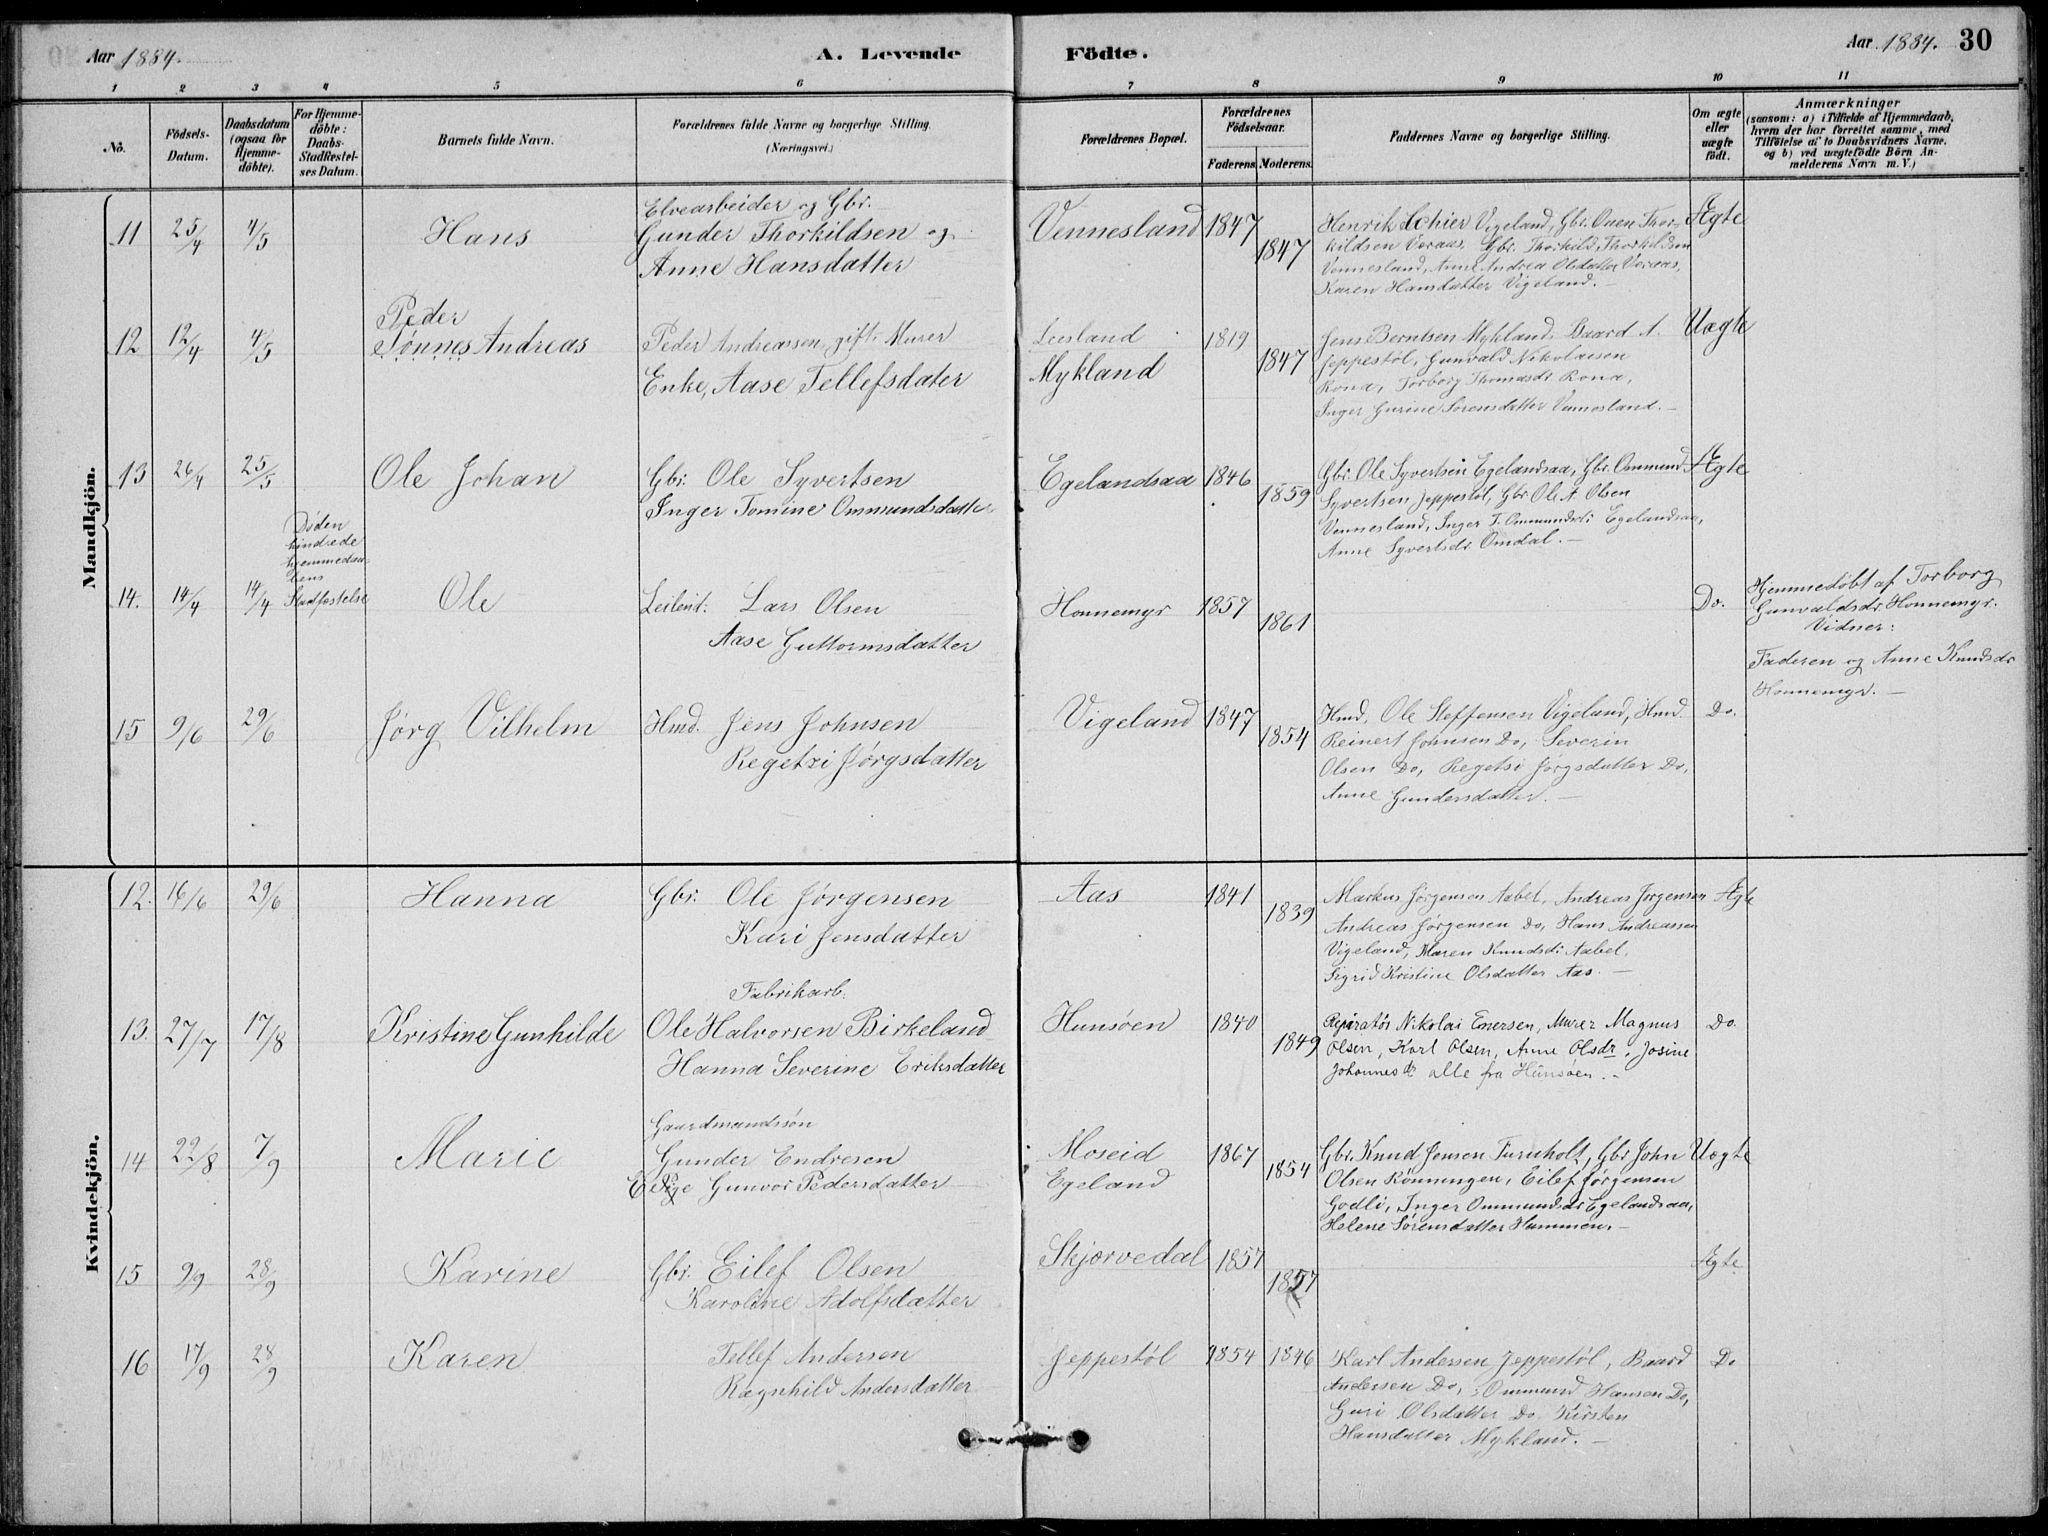 Aar 1884.
A. Levende Födte.
Aar 1884. 30
1 2 3 4 5 6 7 8 9 10 11
No.
Födsels-Datum.
Daabsdatum (ogsaa for Hjemmedöbte).
For Hjemmedöbte: Daabs-Stadfæstelses Datum.
Barnets fulde Navn.
Forældrenes fulde Navne og borgerlige Stilling. (Næringsvei.)
Forældrenes Bopæl.
Forældrenes Födselsaar.
Faderens. Moderens.
Faddernes Navne og borgerlige Stilling.
Om ægte eller uægte födt.
Anmærkninger
(saasom: a) i Tilfælde af Hjemmedaab, hvem der har forrettet samme, med Tilföielse af to Daabsvidners Navne, og b) ved uægtefödte Börn Anmelderens Navn m. V.)
Mandkjön.
11 25/4 4/5 Hans
Elvearbeider og Gbr.
Gunder Thorkildsen og
Anne Hansdatter
Vennesland 1847 1847
Henrik Schier Vigeland, Gbr. Onen Thor-
kildsen Veraas, Gbr. Thorkild Thorkildsen
Vennesland, Anne Andrea Olsdatter Veraas,
Karen Hansdatter Vigeland. –
Ægte
12 12/4 4/5 Peder
Tønnes Andreas
Peder Andreassen, gift Murer
Enke, Aase Tellefsdater
Leesland
Mykland
1819 1847
Jens Berntsen Mykland, Baard A.
Jeppestøl, Gunvald Nikolaisen
Rona, Torborg Thomasdr. Rona,
Inger Gurine Sørensdatter Vennesland. –
Uægte
13 26/4 25/5 Ole Johan
Gbr. Ole Syvertsen
Inger Tomine Ommundsdatter
Egelandsaa 1846 1859
Gbr. Ole Syvertsen Egelandsaa, Gbr. Ommund
Syvertsen Jeppestøl, Gbr. Ole A. Olsen
Vennesland, Inger T. Ommundsdr. Egelandsaa,
Anne Syvertsdr. Omdal. –
Ægte
14. 14/4 14/4
Døden
hindrede
hjemmedaa-
bens
Stadfæstelse
Ole
Leilent: Lars Olsen
Aase Guttormsdatter
Honnemyr 1857 1861
Do.
Hjemmedøbt af Torborg
Gunvaldsdr. Honnemyr.
Vidner:
Faderen og Anne Knudsdr
Honnemyr. –
15 9/6 29/6 Jørg Vilhelm
Hmd. Jens Johnsen
Regetzi Jørgsdatter
Vigeland 1847 1854
Hmd. Ole Steffensen Vigeland, Hmd.
Reinert Johnsen Do, Severin
Olsen Do, Regetsi Jørgsdatter Do,
Anne Gundersdatter. –
Do.
Kvindekjön.
12. 16/6 29/6 Hanna
Gbr. Ole Jørgensen
Kari Jensdatter
Aas 1841 1839
Markus Jørgensen Aabel, Andreas Jørgensen
Andreas Jørgensen Do, Hans Andreassen
Vigeland, Maren Knudsdr. Aabel,
Sigrid Kristine Olsdatter Aas. –
Ægte
13. 27/7 17/8 Kristine Gunhilde
Fabrikarb.
Ole Halvorsen Birkeland
Hanna Severine Eriksdatter
Hunsøen 1840 1849
Reparatør Nikolai Enersen, Murer Magnus
Olsen, Karl Olsen, Anne Olsdr, Josine
Johannesdr alle fra Hunsøen. –
Do.
14 22/8 7/9 Marie
Gaardmandssøn
Gunder Endresen
Gunvor Pedersdatter –
Moseid
Egeland
1867 1854
Gbr. Knud Jensen Furuholt, Gbr John
Olsen Rønningen, Eilef Jørgensen
Godli, Inger Ommundsdr Egelandsaa,
Helene Sørensdatter Hummen. –
Uægte
15 9/9 28/9 Karine
Gbr. Eilef Olsen
Karoline Adolfsdatter
Skjørvedal 1857 1857
Ægte
16 17/9 28/9 Karen
Tellef Andersen
Ragnhild Andersdatter
Jeppestøl 1854 1846
Karl Andersen Jeppestøl, Baard
Andersen Do, Ommund Hansen Do,
Guri Olsdatter Do, Kirsten
Hansdatter Mykland. –
Do